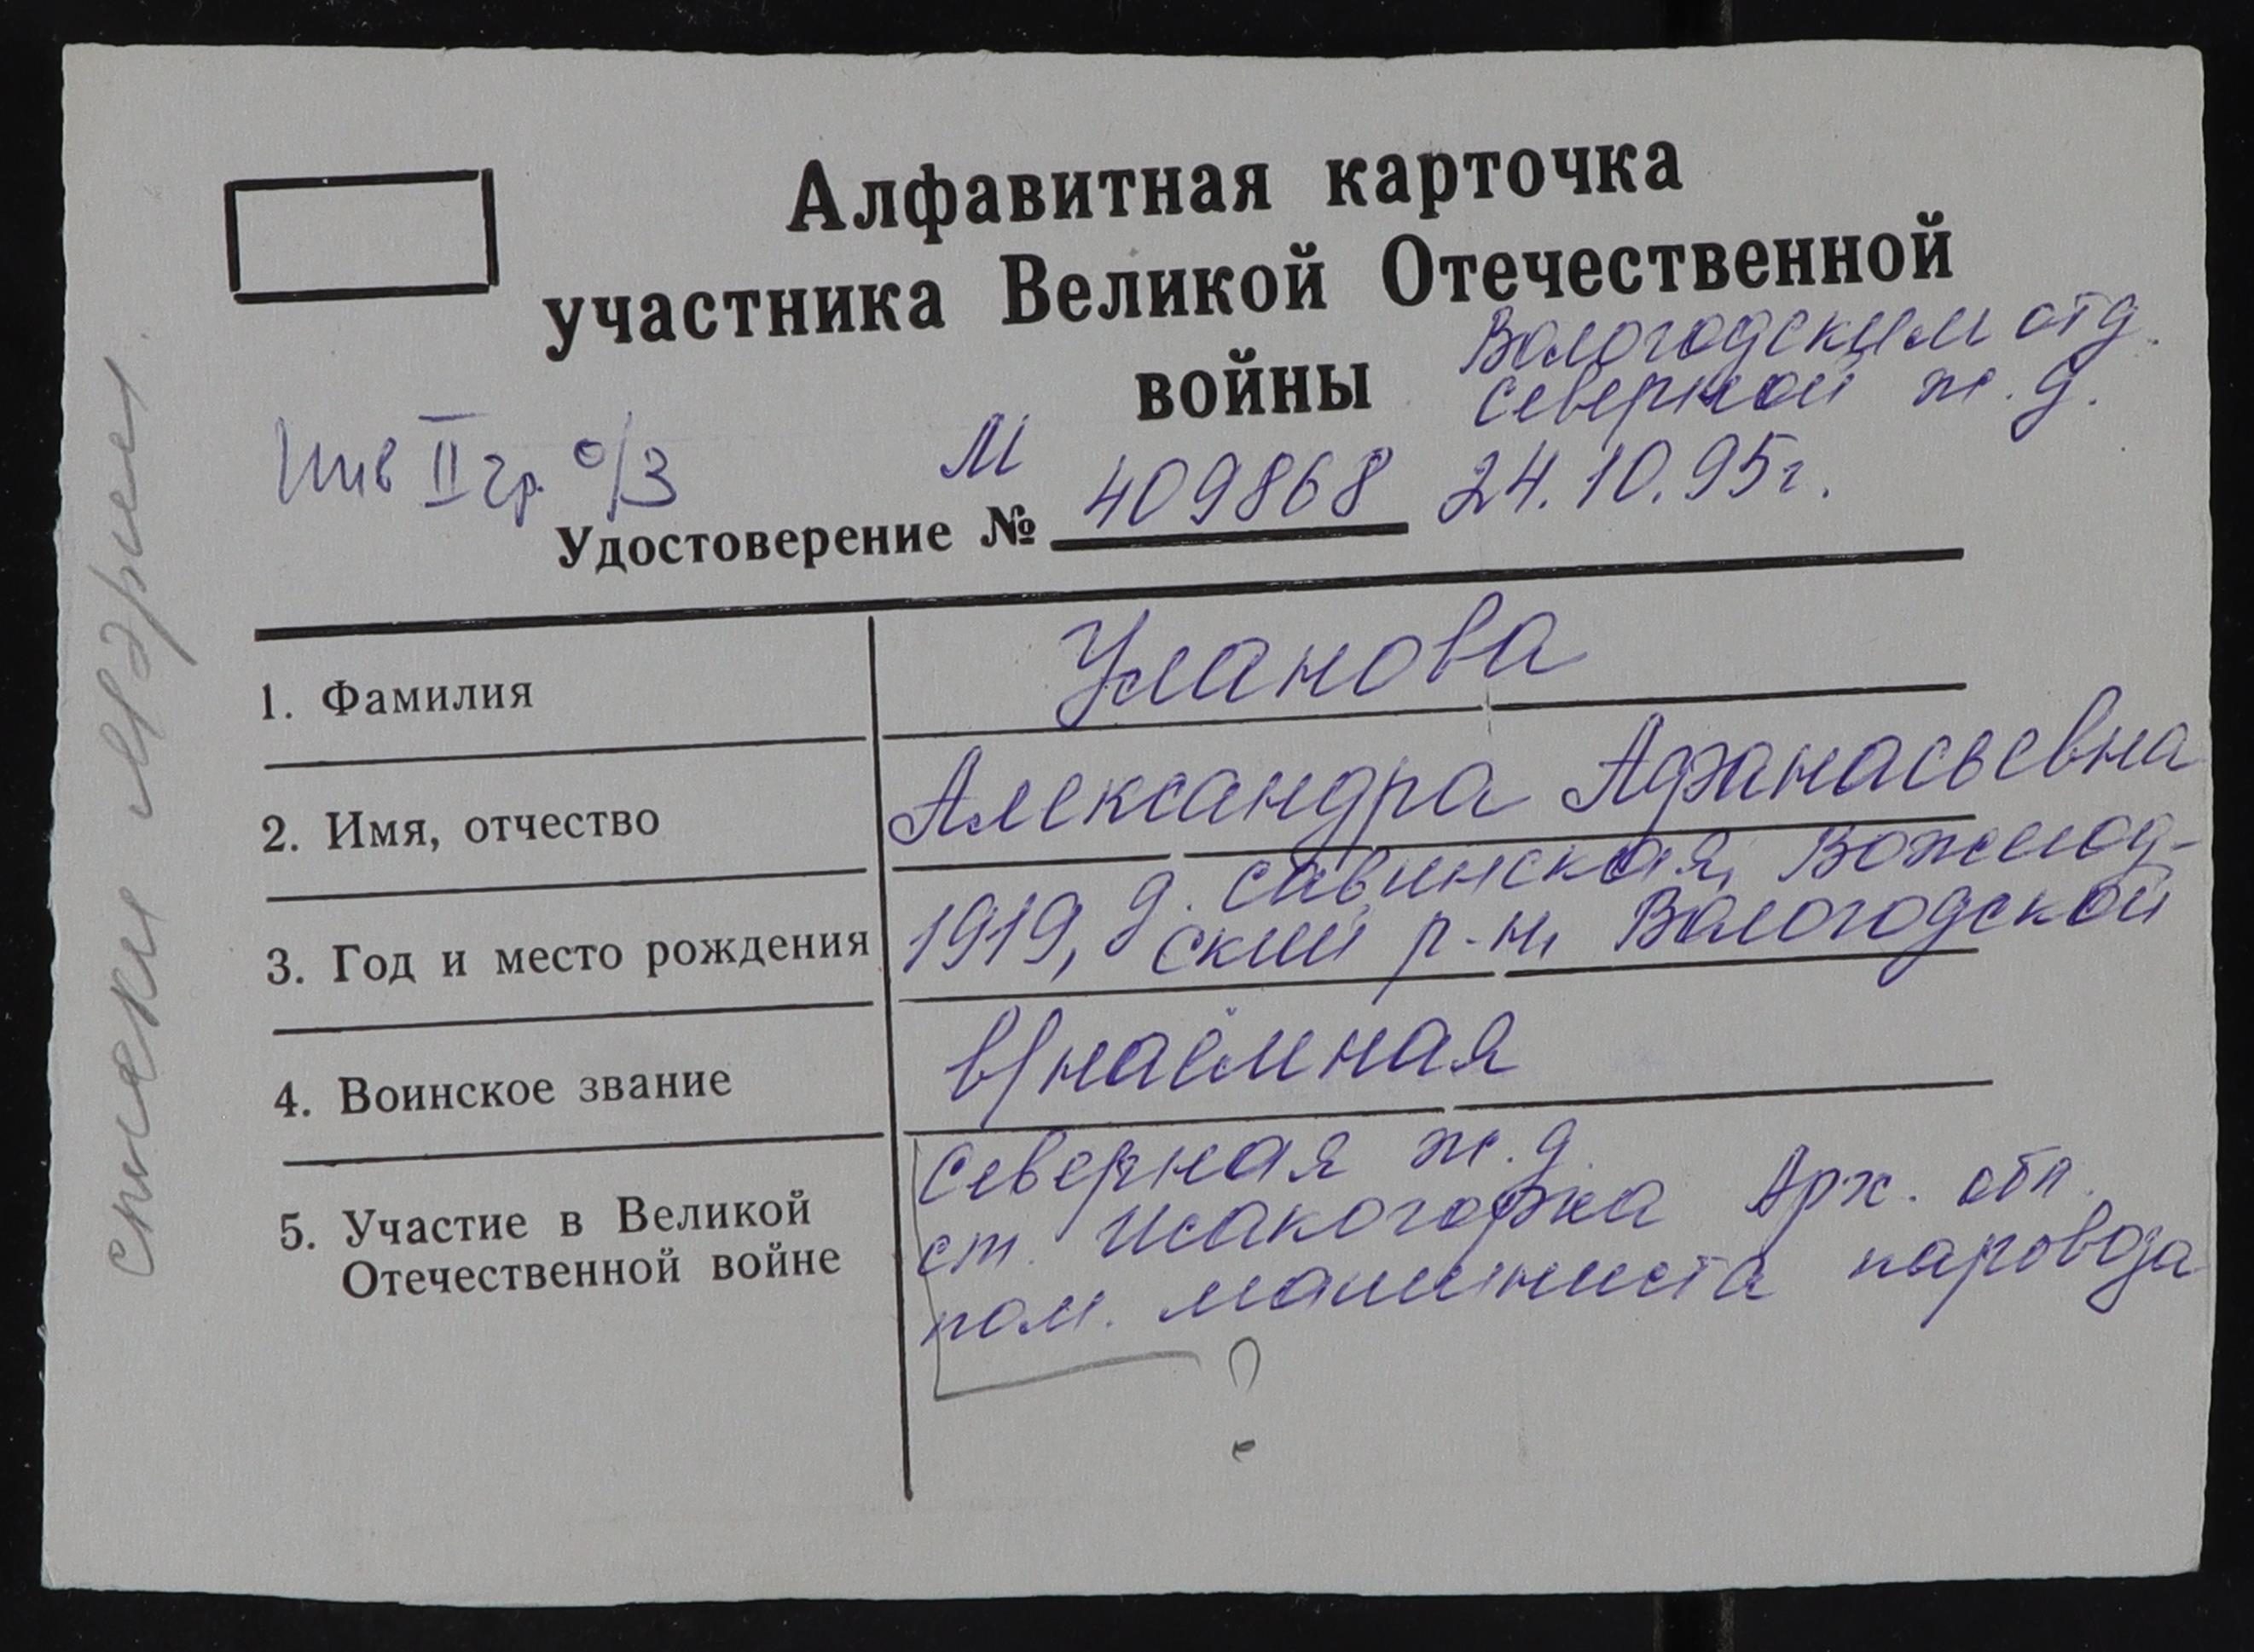 Алфавитная карточка
участника Великой Отечественной
войны
Вологодским отд.
Северной ж.д.
Инв II гр. о/З
М
Удостоверение № 409868 24.10.95г.
1. Фамилия Уланова
2. Имя, отчество Александра Афанасьевна
3. Год и место рождения 1919, д. Савинская, Вожегод-
ский р-н, Вологодской
4. Воинское звание в/наёмная
5. Участие в Великой
Отечественной войне
Северная ж.д.
ст. Исакогорка Арх. обл.
пом. машиниста паровоза
?
списки